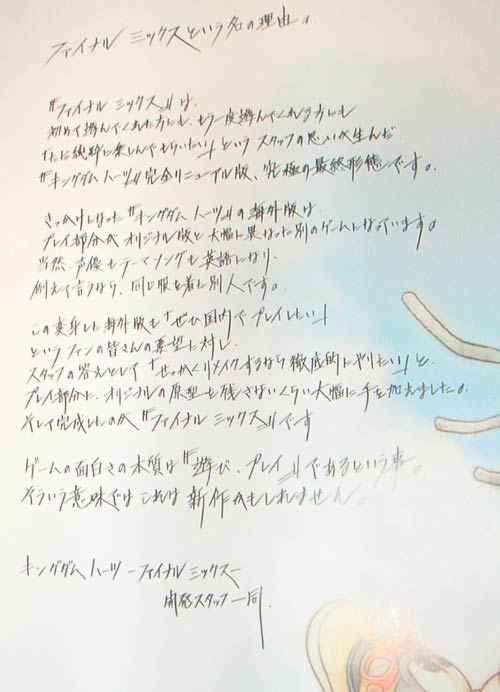 ファイナル ミックスという名の理由。
『ファイナル ミックス』は、
初めて遊んでくれた方にも、もう一度遊んでくれる方にも
「ただ純粋に楽しんでもらいたい」という スタッフの思いが生んだ
『キングダム ハーツ』の完全リニューアル版、究極の最終形態です。
きっかけになった『キングダム ハーツ』の海外版は
プレイ部分が オリジナル版と大幅に異なった別のゲームになっています。
当然、声優もテーマソングも英語になり、
例えて言うなら、同じ服を着た別人です。
この変身した海外版も「ぜひ国内でプレイしたい」
というファンの皆さんの要望に対し、
スタッフの答えとして「せっかくリメイクするなら徹底的にやりたい」と、
プレイ部分に、オリジナルの原型を残さないくらい大幅に手を加えました。
そして完成したのが『ファイナル ミックス』です
ゲームの面白さの本質は『遊び、プレイ』であるという事。
そういう意味では これは 新作かもしれません。
キングダム ハーツ -ファイナル ミックス-
開発スタッフ一同.